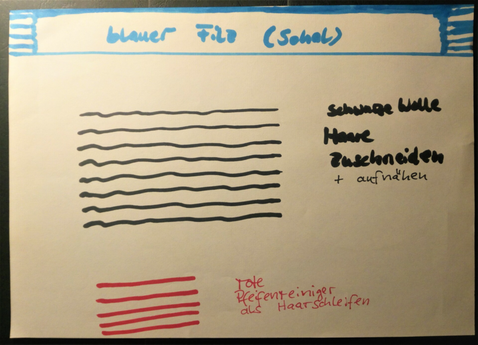 blauer Filz (Schal)
schwarze Wolle
Haare
zuschneiden
+ aufnähen
rote
Pfeifenreiniger
als Haarschleifen